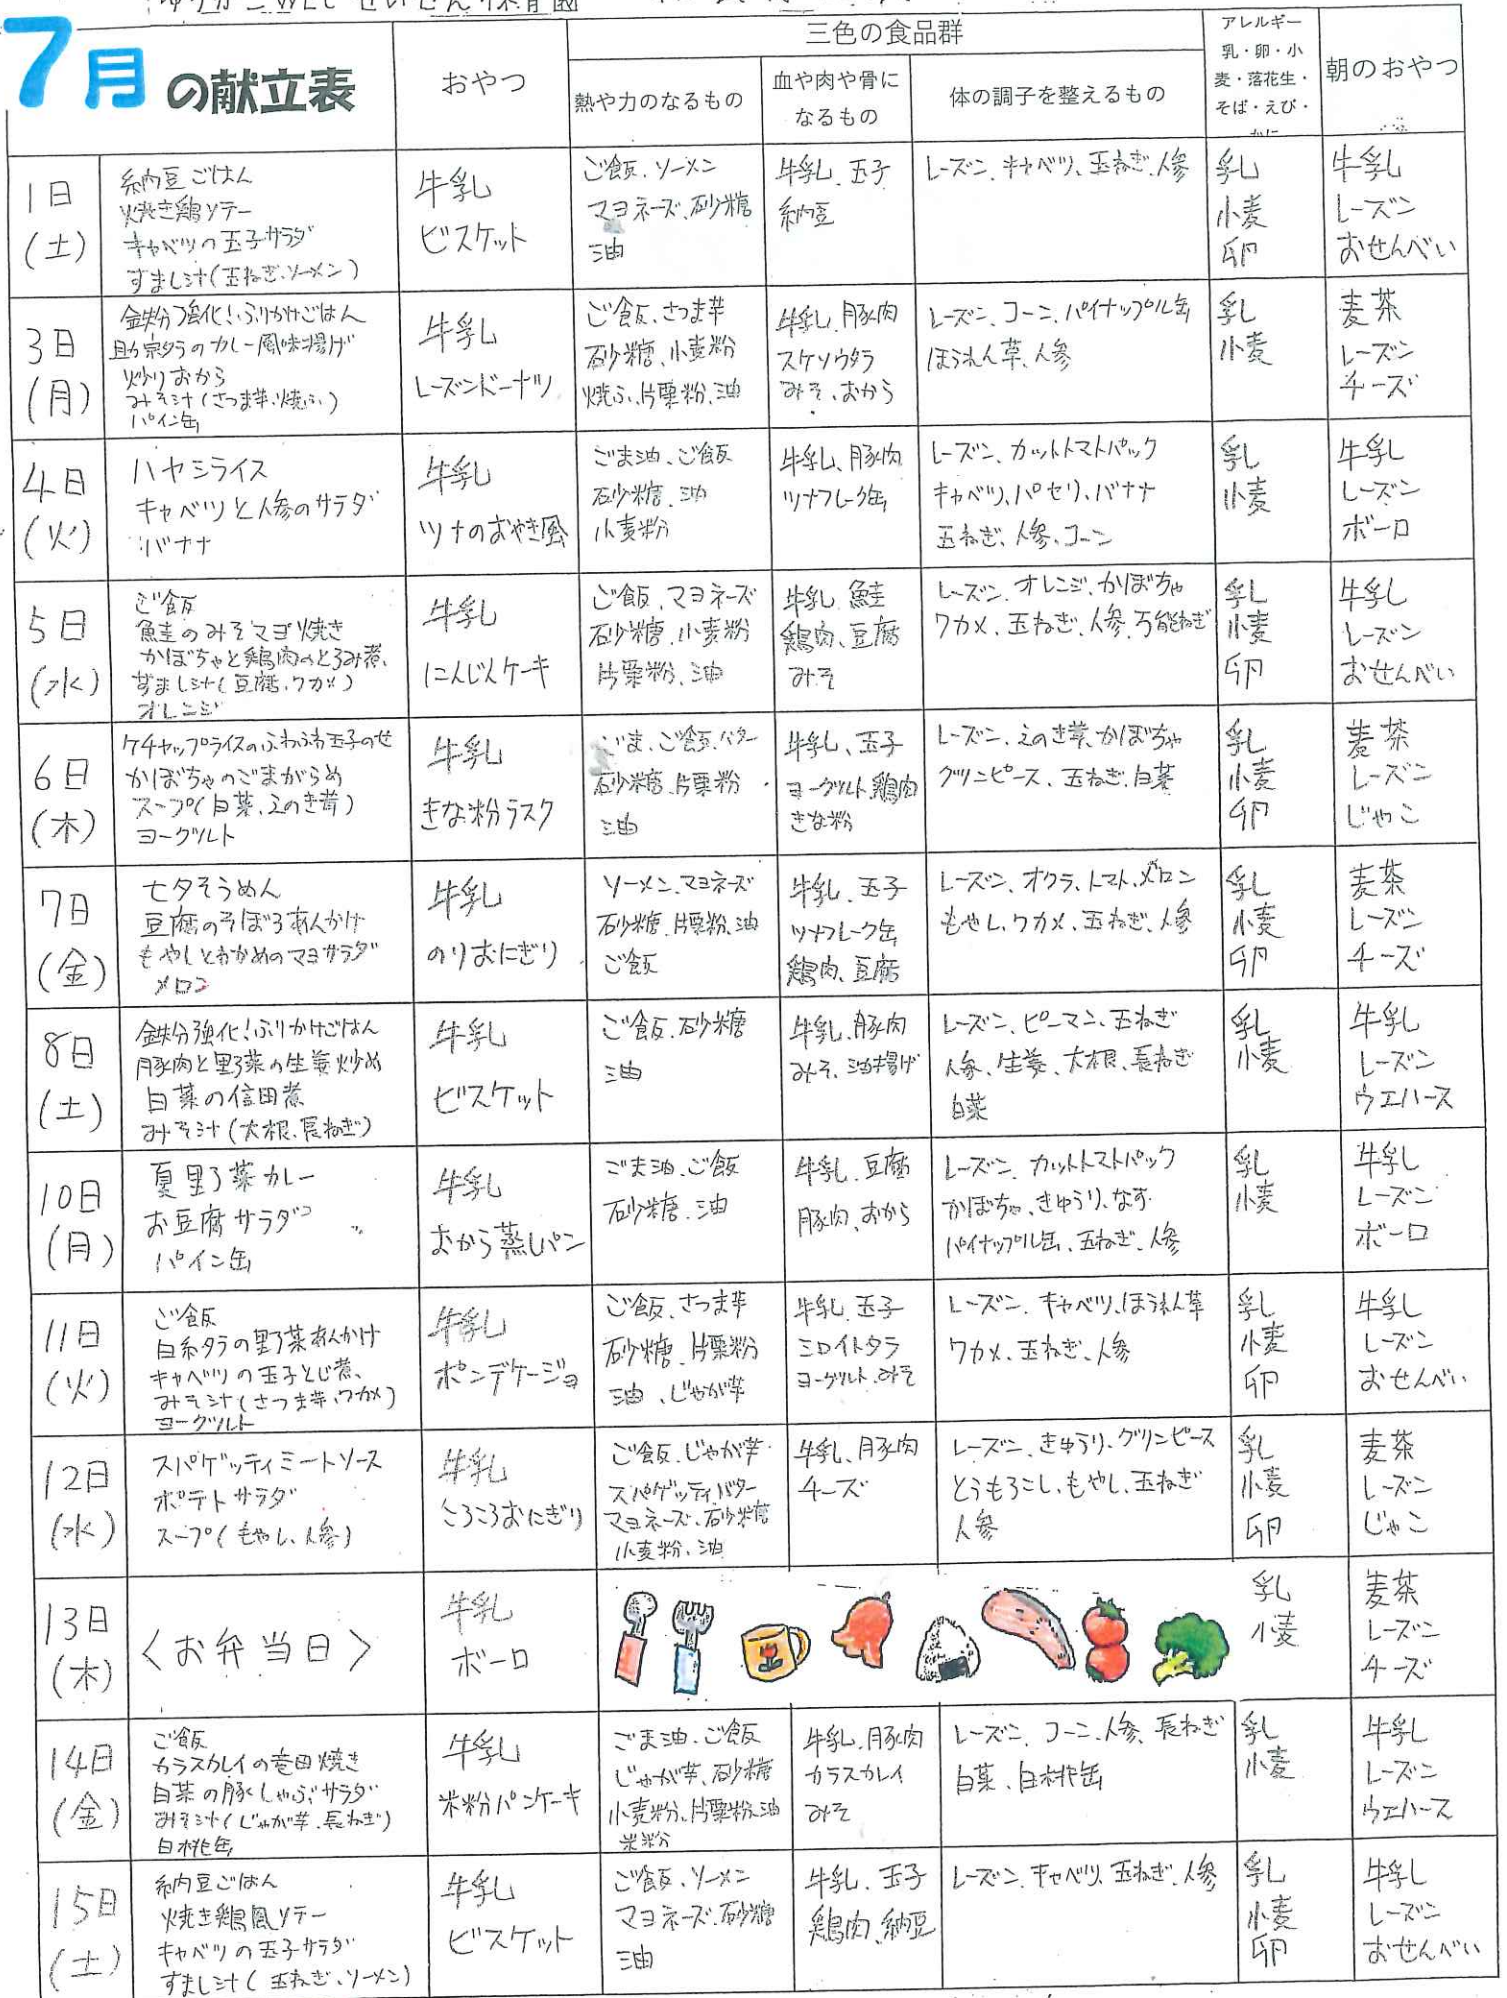 保育園
7月の献立表
おやつ
三色の食品群
熱や力のなるもの
血や肉や骨に
なるもの
体の調子を整えるもの
アレルギー
乳・卵・小
麦・落花生・
そば・えび・
かに
朝のおやつ
1日
(土)
納豆ごはん
焼き鶏ソテー
キャベツの玉子サラダ
すまし汁(玉ねぎ、ソーメン)
牛乳
ビスケット
ご飯、ソーメン
マヨネーズ、砂糖
油
牛乳、玉子
納豆
レーズン、キャベツ、玉ねぎ、人参
乳
小麦
卵
牛乳
レーズン
おせんべい
3日
(月)
鉄分強化!ふりかけごはん
助宗タラのカレー風味揚げ
炒りおから
みそ汁(さつま芋、焼ふ)
パイン缶
牛乳
レーズンドーナツ
ご飯、さつま芋
砂糖、小麦粉
焼ふ、片栗粉、油
牛乳、豚肉
スケソウタラ
みそ、おから
レーズン、コーン、パイナップル缶
ほうれん草、人参
乳
小麦
麦茶
レーズン
チーズ
4日
(火)
ハヤシライス
キャベツと人参のサラダ
バナナ
牛乳
ツナのおやき風
ごま油、ご飯
砂糖、油
小麦粉
牛乳、豚肉
ツナフレーク缶
レーズン、カットトマトパック
キャベツ、パセリ、バナナ
玉ねぎ、人参、コーン
乳
小麦
牛乳
レーズン
ボーロ
5日
(水)
ご飯
鮭のみそマヨ焼き
かぼちゃと鶏肉のとろみ煮
すまし汁(豆腐、ワカメ)
オレンジ
牛乳
にんじんケーキ
ご飯、マヨネーズ
砂糖、小麦粉
片栗粉、油
牛乳、鮭
鶏肉、豆腐
みそ
レーズン、オレンジ、かぼちゃ
ワカメ、玉ねぎ、人参、万能ねぎ
乳
小麦
卵
牛乳
レーズン
おせんべい
6日
(木)
ケチャップライスのふわふわ玉子のせ
かぼちゃのごまがらめ
スープ(白菜、えのき茸)
ヨーグルト
牛乳
きな粉ラスク
ごま、ご飯、バター
砂糖、片栗粉
油
牛乳、玉子
ヨーグルト、鶏肉
きな粉
レーズン、えのき茸、かぼちゃ
グリンピース、玉ねぎ、白菜
乳
小麦
卵
麦茶
レーズン
じゃこ
7日
(金)
七夕そうめん
豆腐のそぼろあんかけ
もやしとわかめのマヨサラダ
メロン
牛乳
のりおにぎり
ソーメン、マヨネーズ
砂糖、片栗粉、油
ご飯
牛乳、玉子
ツナフレーク缶
鶏肉、豆腐
レーズン、オクラ、トマト、メロン
もやし、ワカメ、玉ねぎ、人参
乳
小麦
卵
麦茶
レーズン
チーズ
8日
(土)
鉄分強化!ふりかけごはん
豚肉と野菜の生姜炒め
白菜の信田煮
みそ汁(大根、長ねぎ)
牛乳
ビスケット
ご飯、砂糖
油
牛乳、豚肉
みそ、油揚げ
レーズン、ピーマン、玉ねぎ
人参、生姜、大根、長ねぎ
白菜
乳
小麦
牛乳
レーズン
ウエハース
10日
(月)
夏野菜カレー
お豆腐サラダ
パイン缶
牛乳
おから蒸しパン
ごま油、ご飯
砂糖、油
牛乳、豆腐
豚肉、おから
レーズン、カットトマトパック
かぼちゃ、きゅうり、なす
パイナップル缶、玉ねぎ、人参
乳
小麦
牛乳
レーズン
ボーロ
11日
(火)
ご飯
白糸タラの野菜あんかけ
キャベツの玉子とじ煮
みそ汁(さつま芋、ワカメ)
ヨーグルト
牛乳
ポンデケージョ
ご飯、さつま芋
砂糖、片栗粉
油、じゃが芋
牛乳、玉子
シロイトタラ
ヨーグルト、みそ
レーズン、キャベツ、ほうれん草
ワカメ、玉ねぎ、人参
乳
小麦
卵
牛乳
レーズン
おせんべい
12日
(水)
スパゲッティミートソース
ポテトサラダ
スープ(もやし、人参)
牛乳
ころころおにぎり
ご飯、じゃが芋
スパゲッティ、バター
マヨネーズ、砂糖
小麦粉、油
牛乳、豚肉
チーズ
レーズン、きゅうり、グリンピース
とうもろこし、もやし、玉ねぎ
人参
乳
小麦
卵
麦茶
レーズン
じゃこ
13日
(木)
〈お弁当日〉
牛乳
ボーロ
乳
小麦
麦茶
レーズン
チーズ
14日
(金)
ご飯
カラスカレイの竜田焼き
白菜の豚しゃぶサラダ
みそ汁(じゃが芋、長ねぎ)
白桃缶
牛乳
米粉パンケーキ
ごま油、ご飯
じゃが芋、砂糖
小麦粉、片栗粉、油
米粉
牛乳、豚肉
カラスカレイ
みそ
レーズン、コーン、人参、長ねぎ
白菜、白桃缶
乳
小麦
牛乳
レーズン
ウエハース
15日
(土)
納豆ごはん
焼き鶏風ソテー
キャベツの玉子サラダ
すまし汁(玉ねぎ、ソーメン)
牛乳
ビスケット
ご飯、ソーメン
マヨネーズ、砂糖
油
牛乳、玉子
鶏肉、納豆
レーズン、キャベツ、玉ねぎ、人参
乳
小麦
卵
牛乳
レーズン
おせんべい